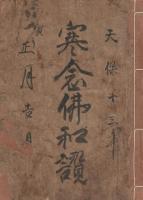 天保十三年
寒念佛和讃
正月吉日